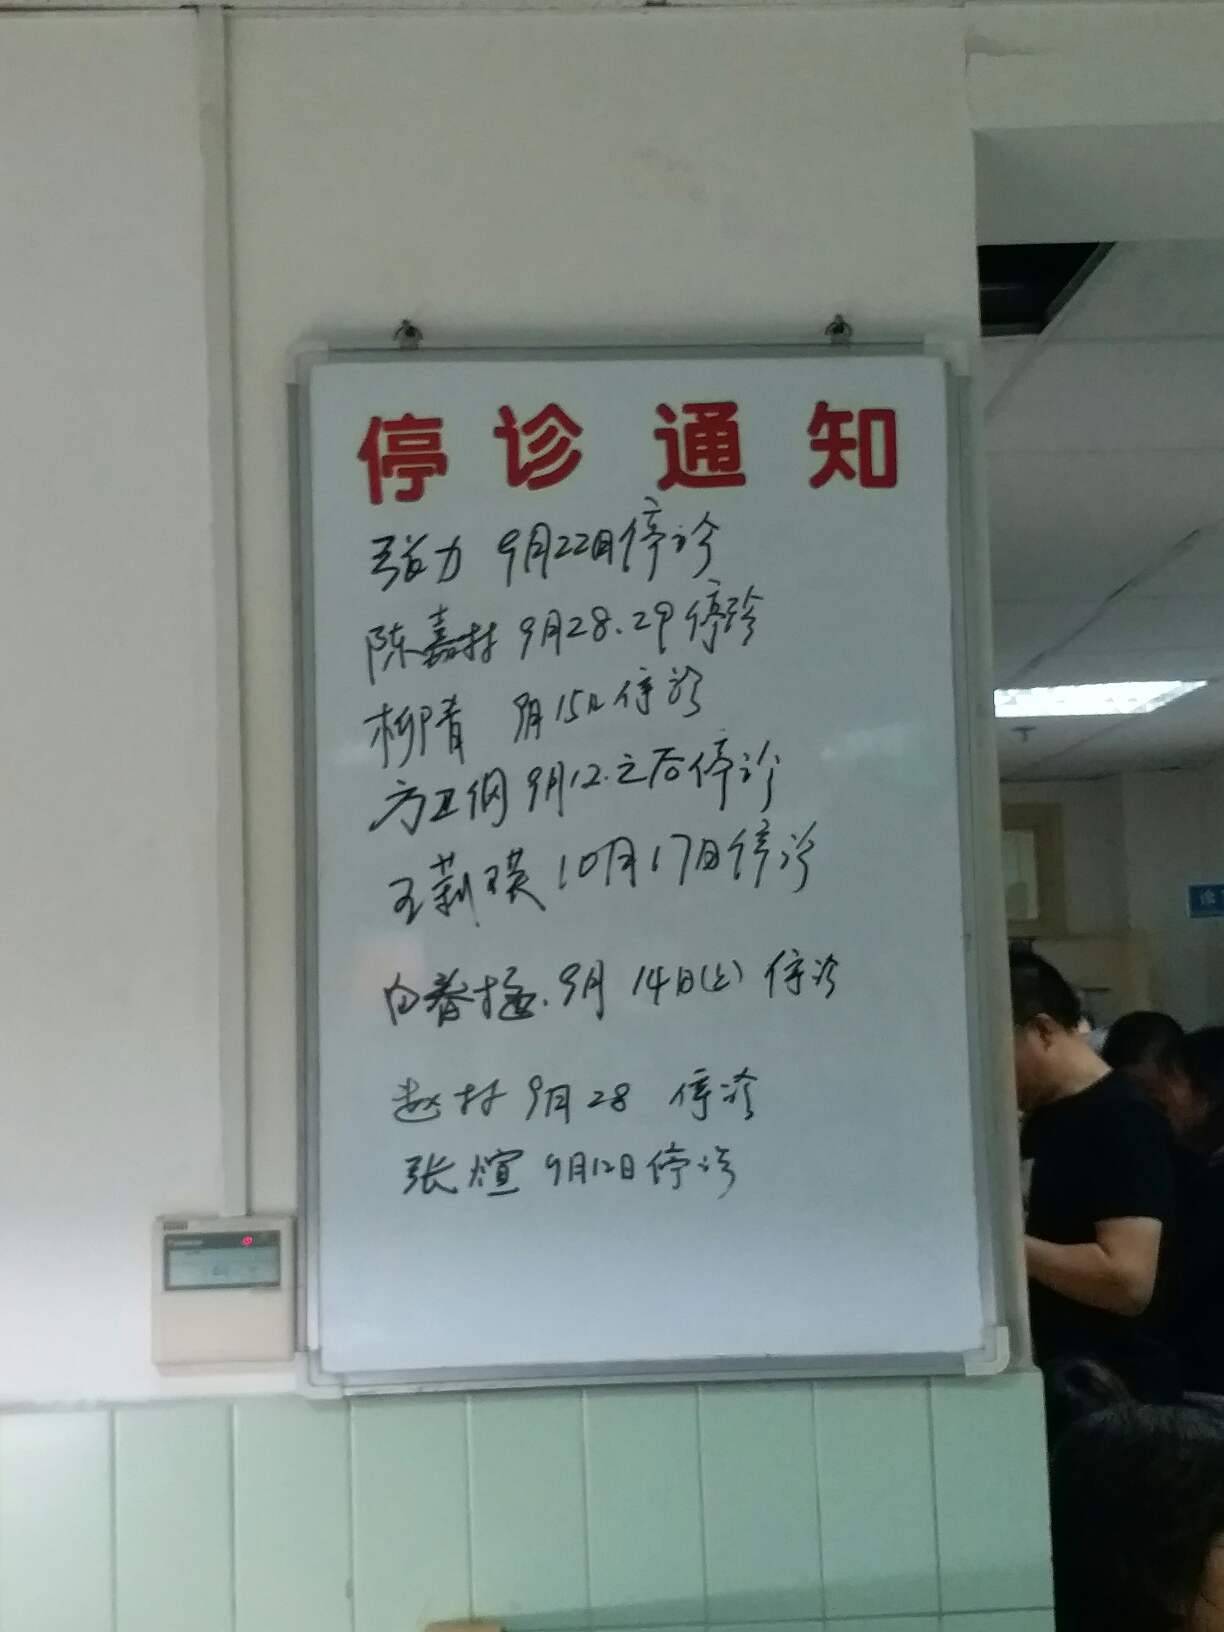 停诊通知
张力 9月22日停诊
陈嘉林 9月28.29停诊
柳青 9月15日停诊
方卫纲 9月12.之后停诊
王莉瑛 10月17日停诊
白春 9月14日(上) 停诊
赵林 9月28 停诊
张煊 9月12日停诊